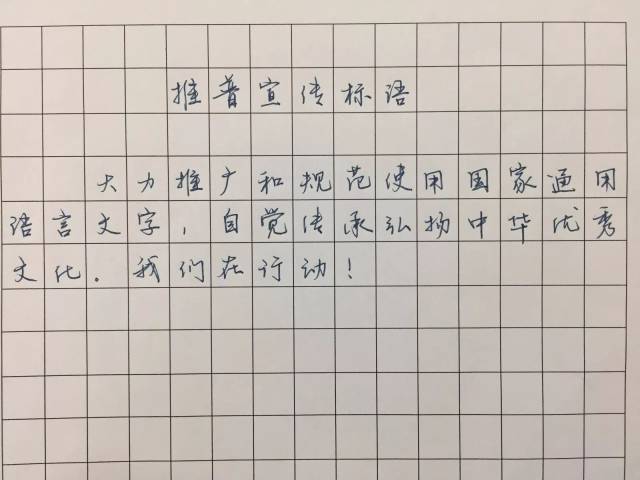 推普宣传标语
大力推广和规范使用国家通用
语言文字,自觉传承弘扬中华优秀
文化.我们在行动!